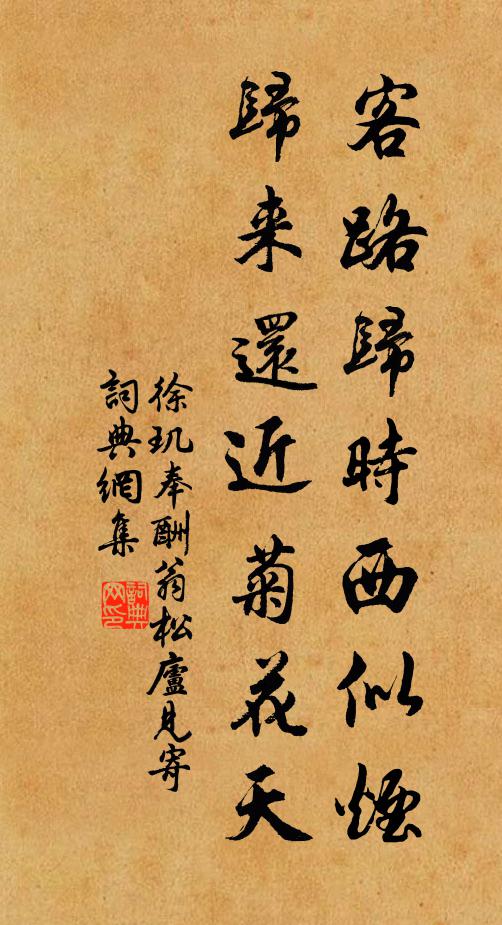 客路歸時西似煙
歸来還近菊花天
徐玑奉酬翁松廬見寄
詞典網集
詞典
网印